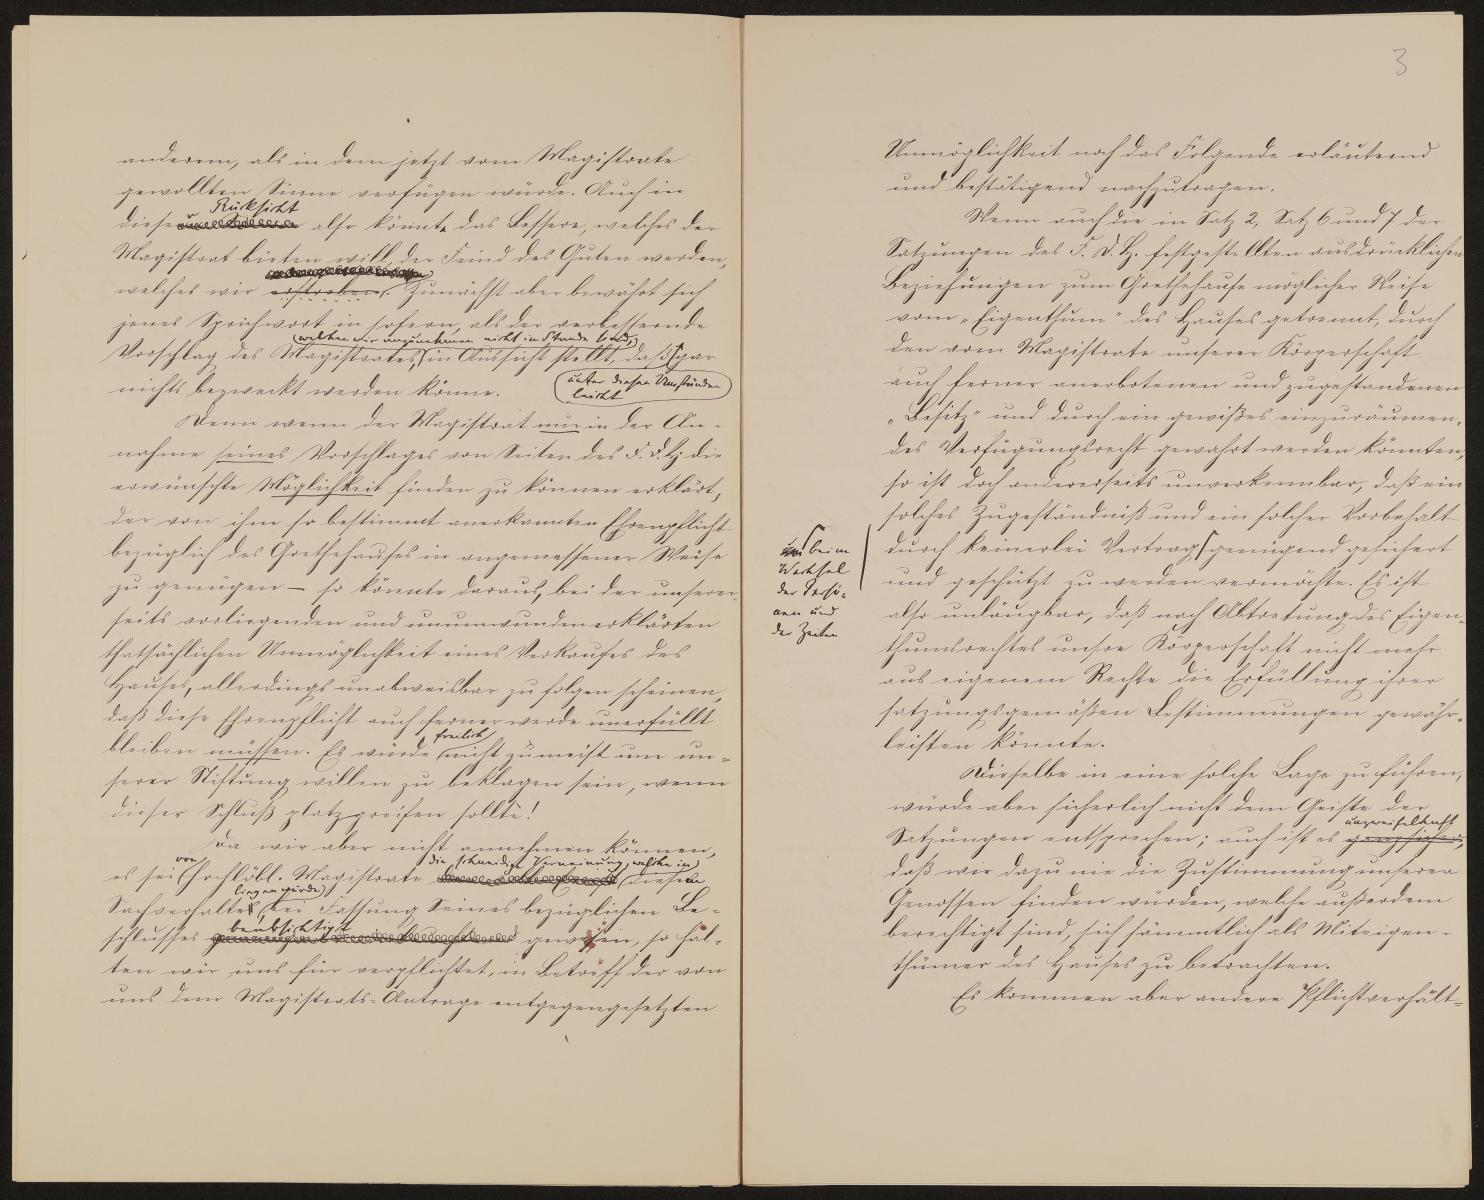 anderem, als in dem jetzt vom Magistrate
gewollten Sinne verfügen würde. Auch in
dieser Rücksicht also könnte das Bessere, welches der
Magistrat bieten will, der Feind des Guten werden,
welches wir erstreben. Zunächst aber bewährt sich
jenes Sprichwort in sofern, als der verbessernde
(welchen wir anzunehmen nicht im Stande sind,)
Vorschlag des Magistrates, in Aussicht stellt, daß gar
unter diesen Umständen
leicht
nichts bezweckt werden könne.
Denn wenn der Magistrat nur in der An-
nahme seines Vorschlages von Seiten des F. D. H. die
erwünschte Möglichkeit finden zu können erklärt,
der von ihm so bestimmt anerkannten Ehrenpflicht
bezüglich des Goethehauses in angemessener Weise
zu genügen – so könnte daraus, bei der unserer-
seits vorliegenden und unumwunden erklärten
thatsächlichen Unmöglichkeit eines Verkaufes des
Hauses, allerdings unabweisbar zu folgen scheinen,
daß diese Ehrenpflicht auch ferner werde unerfüllt
bleiben müssen. Es würde freilich nicht zumeist um un-
serer Stiftung willen zu beklagen sein, wenn
dieser Schluß platzgreifen sollte!
Da wir aber nicht annehmen können,
es sei von Hochlöbl. Magistrate die schneidige Verneinung, welche in diesem
Sachverhalte liegen würde, bei Fassung Seines bezüglichen Be-
schlusses beabsichtigt gewesen, so hal-
ten wir uns für verpflichtet, in Betreff der von
uns dem Magistrats-Antrage entgegengesetzten
3
Unmöglichkeit noch das Folgende erläuternd
und bestätigend nachzutragen.
Wenn auch die in Satz 2, Satz 6 und 7 der
Satzungen des F. D. H. festgestellten ausdrücklichen
Beziehungen zum Goethehause möglicher Weise
vom „Eigenthum" des Hauses getrennt, durch
den vom Magistrate unserer Körperschaft
auch ferner anerbotenen und zugestandenen
„Besitz" und durch ein gewißes einzuräumen-
des Verfügungsrecht gewahrt werden könnten,
so ist doch andererseits unverkennbar, daß ein
solches Zugeständniß und ein solcher Vorbehalt
durch keinerlei Vertrag genügend gesichert
beim
Wechsel
der Perso-
nen und
der Zeiten
und geschützt zu werden vermöchte. Es ist
also unläugbar, daß nach Abtretung des Eigen-
thumsrechtes unsre Körperschaft nicht mehr
aus eigenem Rechte die Erfüllung ihrer
satzungsgemäßen Bestimmungen gewähr-
leisten könnte.
Dieselbe in eine solche Lage zu führen,
würde aber sicherlich nicht dem Geiste der
Satzungen entsprechen; auch ist es ganz sicher, unzweifelhaft
daß wir dazu nie die Zustimmung unserer
Genossen finden würden, welche außerdem
berechtigt sind, sich sämmtlich als Miteigen-
thümer des Hauses zu betrachten.
Es kommen aber andere Pflichtverhält-